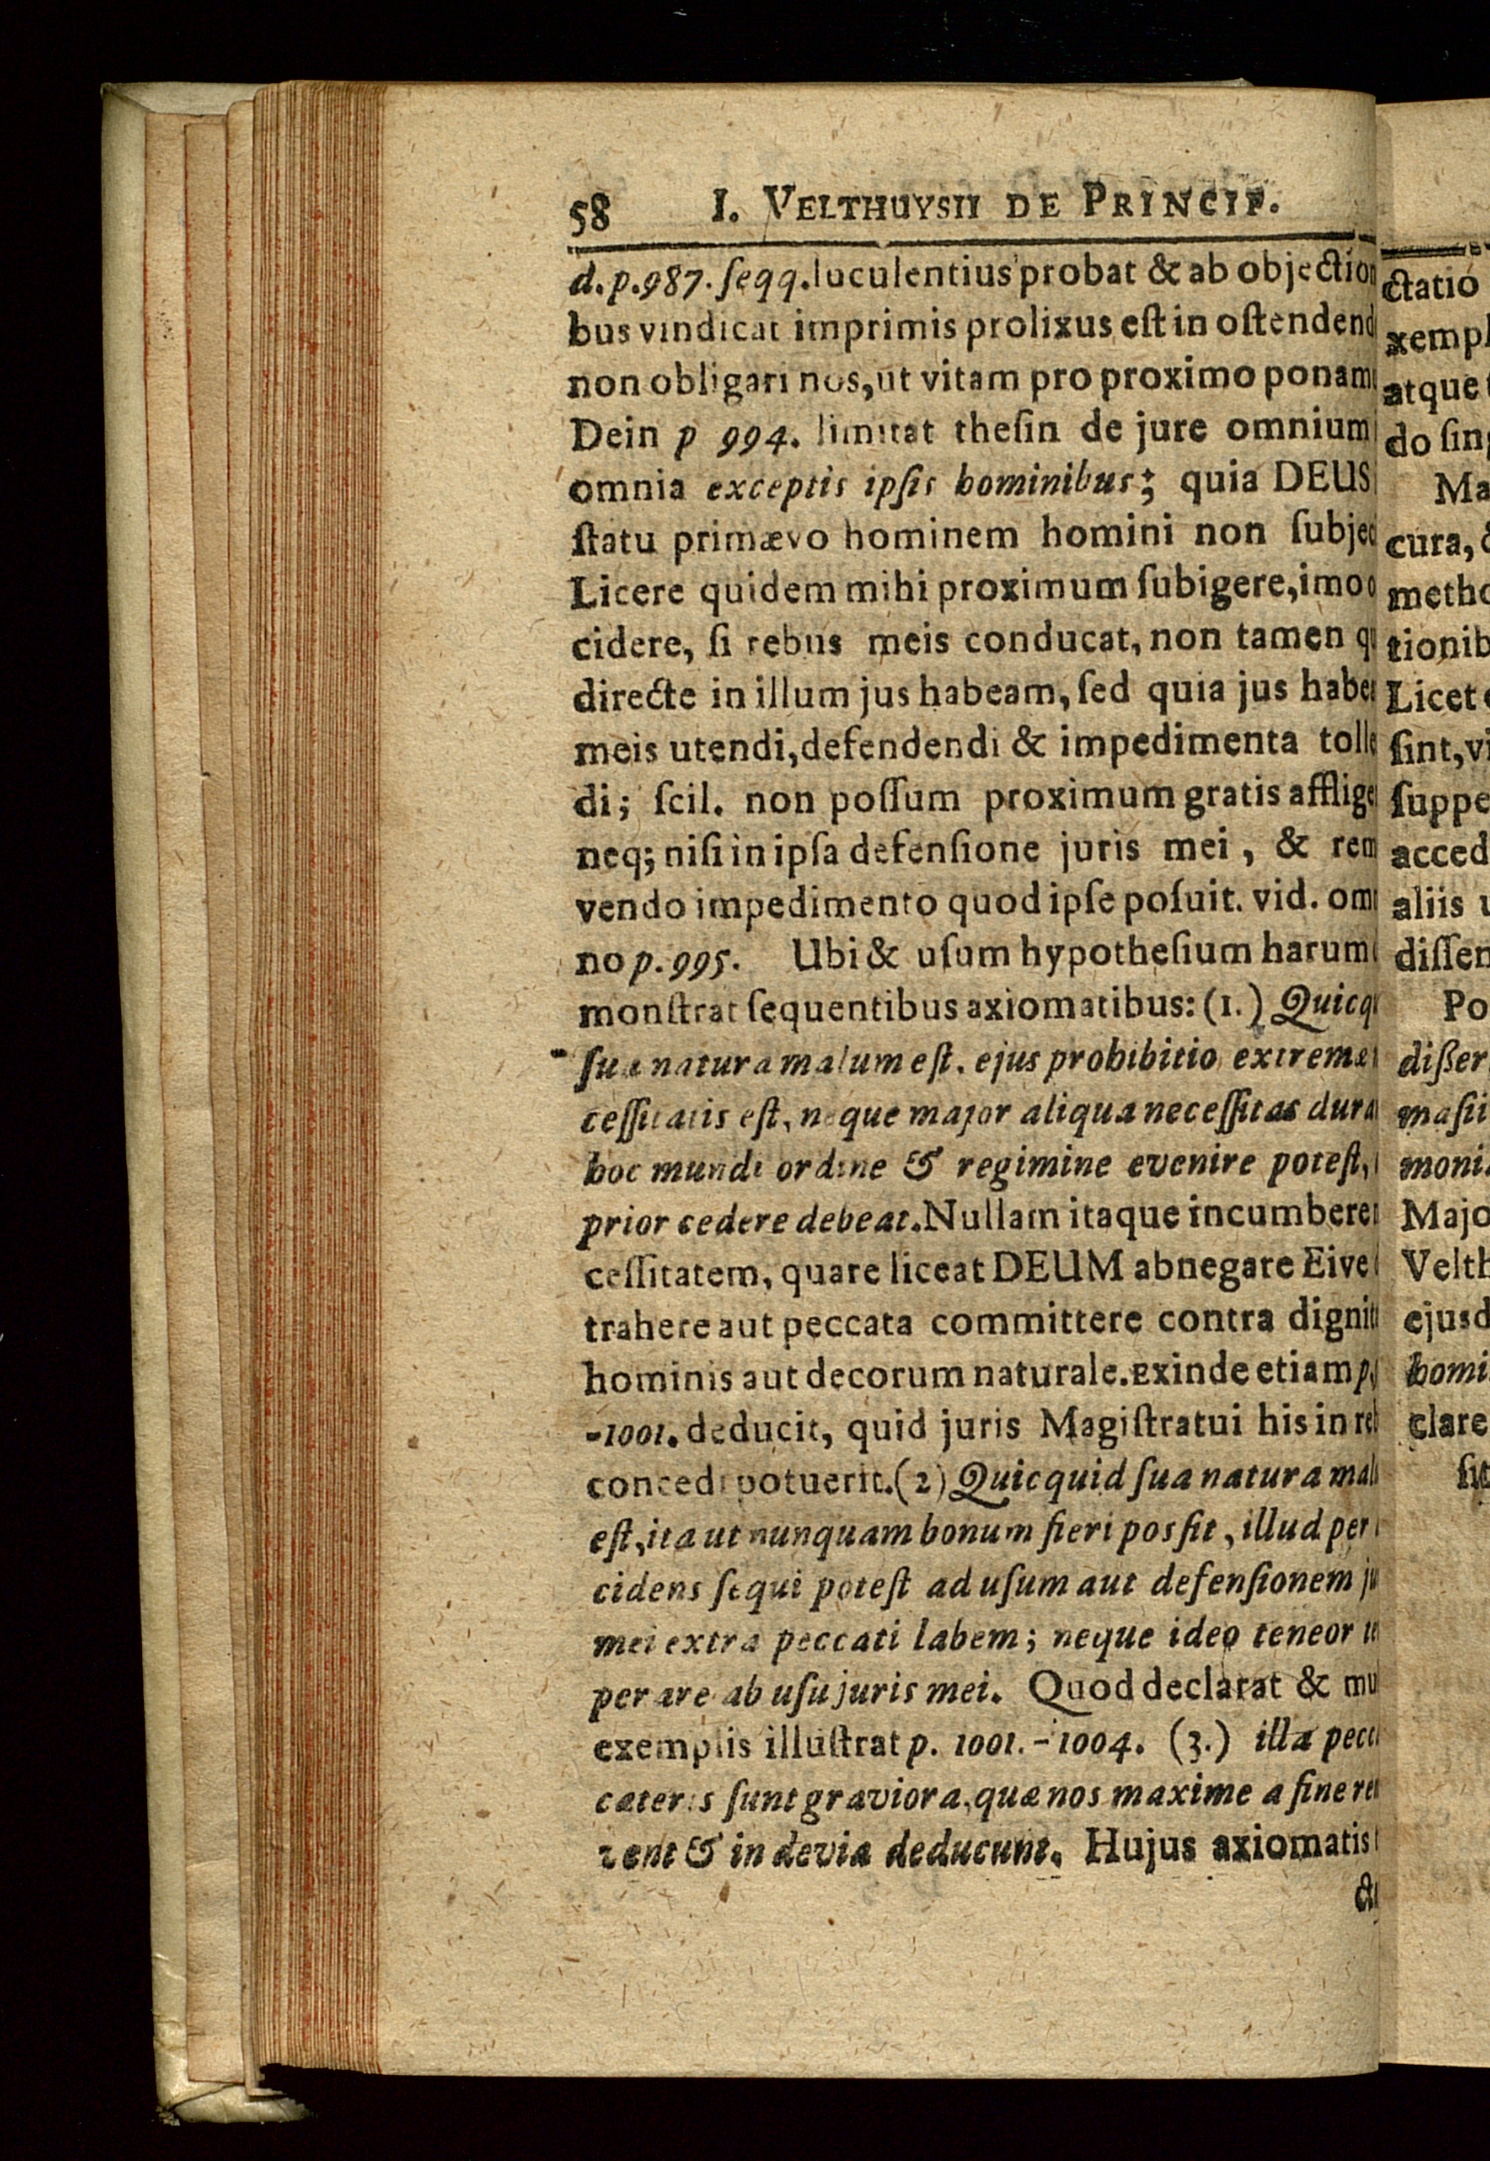 58 I. VELTHUYSII DE PRINCIP.
d. p. 987. ſeqq. luculentius probat & ab objection
bus vindicat imprimis prolixus eſt in oſtendend
non obligari nos, ut vitam pro proximo ponam
Dein p 994. limitat theſin de jure omnium
omnia exceptis ipſis hominibus; quia DEUS
ſtatu primævo hominem homini non ſubjec
Licere quidem mihi proximum ſubigere, imo o
cidere, ſi rebus meis conducat, non tamen qu
directe in illum jus habeam, ſed quia jus habe
meis utendi, defendendi & impedimenta tolle
di; ſcil. non poſſum proximum gratis afflige
neq; niſi in ipſa defenſione juris mei, & rem
vendo impedimento quod ipſe poſuit. vid. om
no p. 995. Ubi & uſum hypotheſium harum
monſtrat ſequentibus axiomatibus: (1.) Quicq
ſua natura malum eſt, ejus prohibitio extremæ
ceſſitatis eſt, neque major aliqua neceſſitas dura
hoc mundi ordine & regimine evenire poteſt,
prior cedere debeat. Nullam itaque incumbere
ceſſitatem, quare liceat DEUM abnegare Eive
trahere aut peccata committere contra dignit
hominis aut decorum naturale. Exinde etiam p.
-1001. deducit, quid juris Magiſtratui his in reb
concedi potuerit. (2) Quicquid ſua natura mal
eſt, ita ut nunquam bonum fieri posſit, illud per
cidens ſequi poteſt ad uſum aut defenſionem ju
mei extra peccati labem; neque ideo teneor
perare ab uſu juris mei. Quod declarat & mu
exemplis illuſtrat p. 1001.-1004. (3.) illa pecc
cæteris ſunt graviora, quæ nos maxime a fine re
ent & in devia deducunt. Hujus axiomatis
ct
ctatio
xempl
atque
do ſing
Ma
cura, &
metho
tionib
Licet
ſint, vi
ſuppe
acced
aliis
diſſen
Po
diſſer
maſii
moni
Majo
Velth
ejusd
homi
clare
ſit